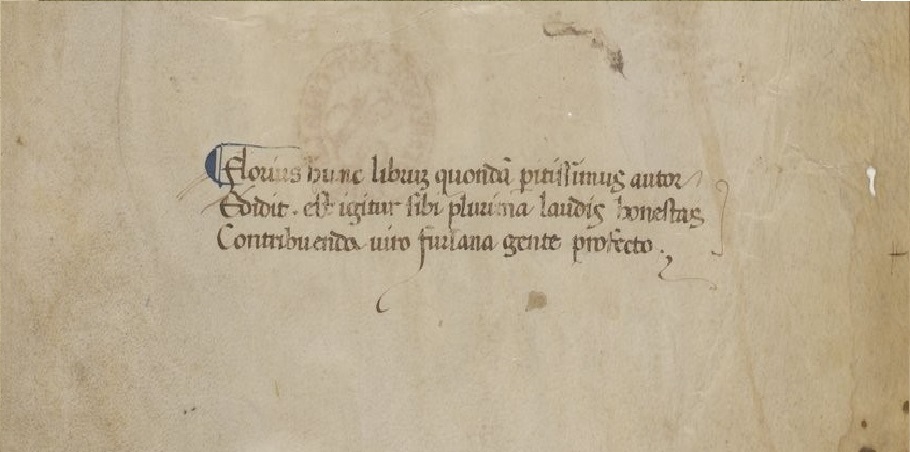 Florius hunc librum quondã pitissimus autor
Edidit. est igitur sibi plurima laudis honestas
Contribuenda uiro furlana gente profecto.